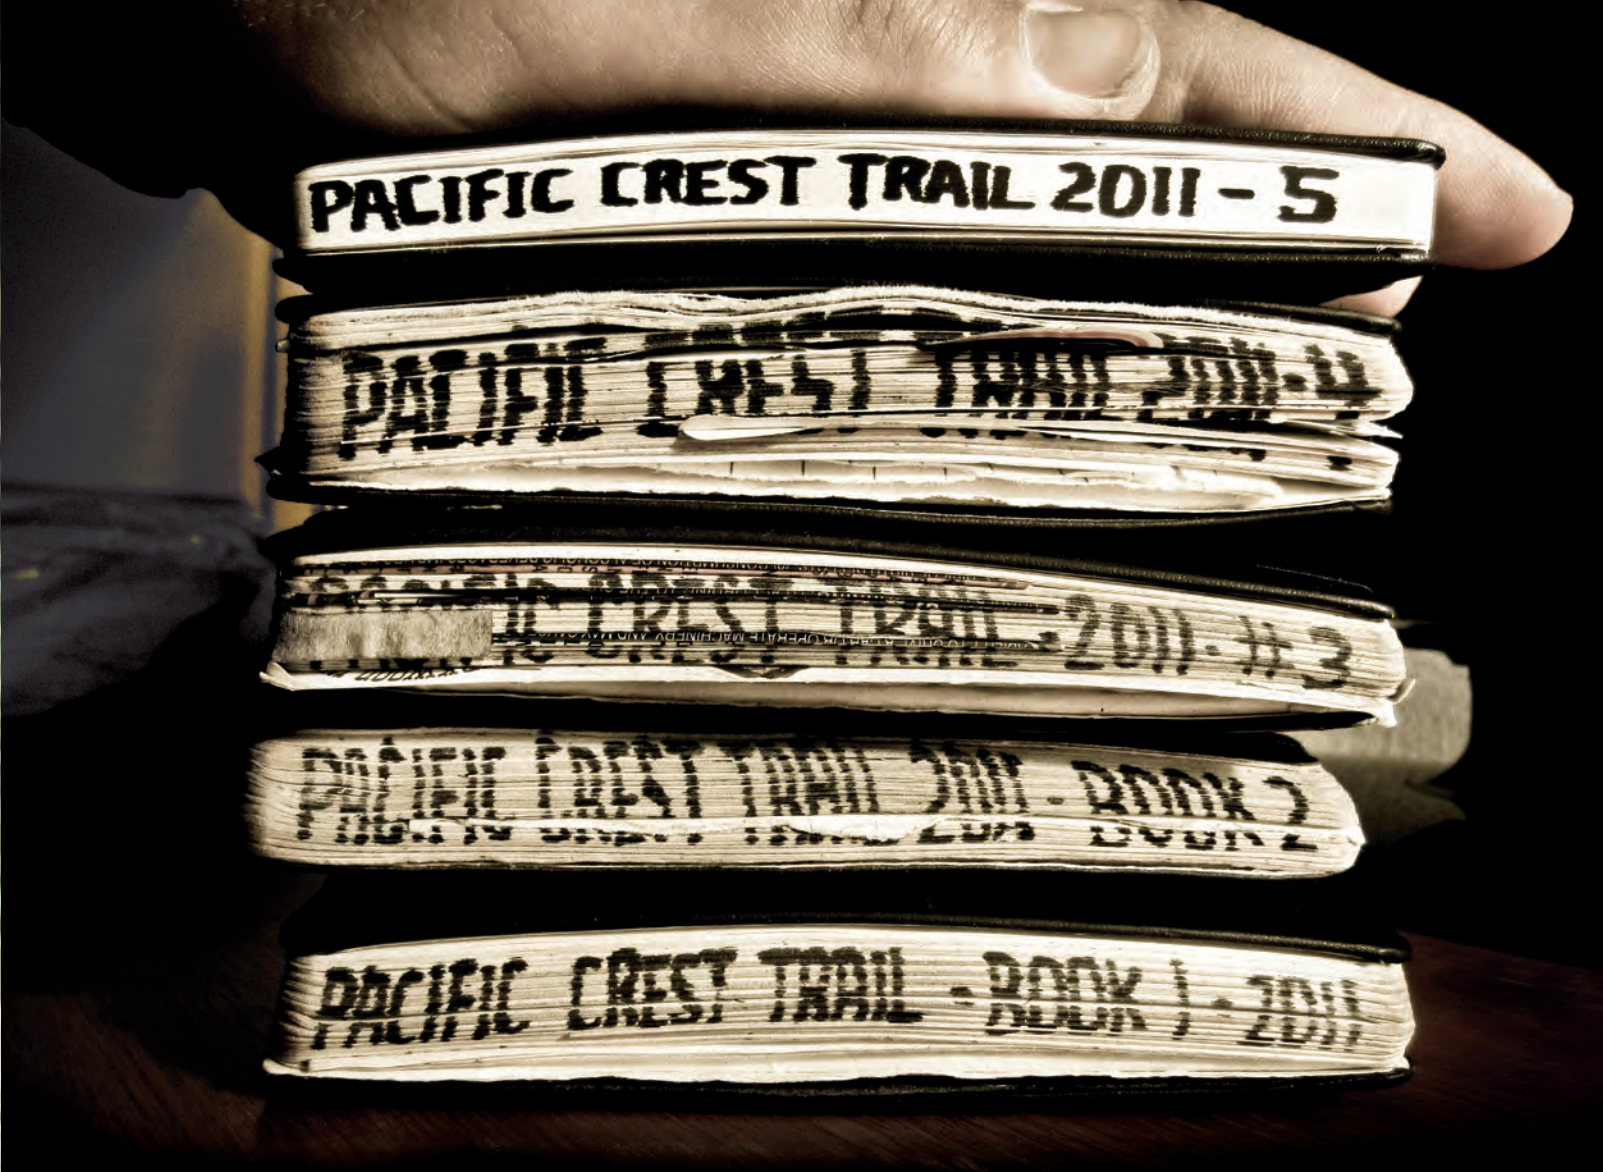 PACIFIC CREST TRAIL 2011 - 5
PACIFIC CREST TRAIL 2011 - 4
PACIFIC CREST TRAIL - 2011 - #3
PACIFIC CREST TRAIL 2011 - BOOK 2
PACIFIC CREST TRAIL - BOOK 1 - 2011